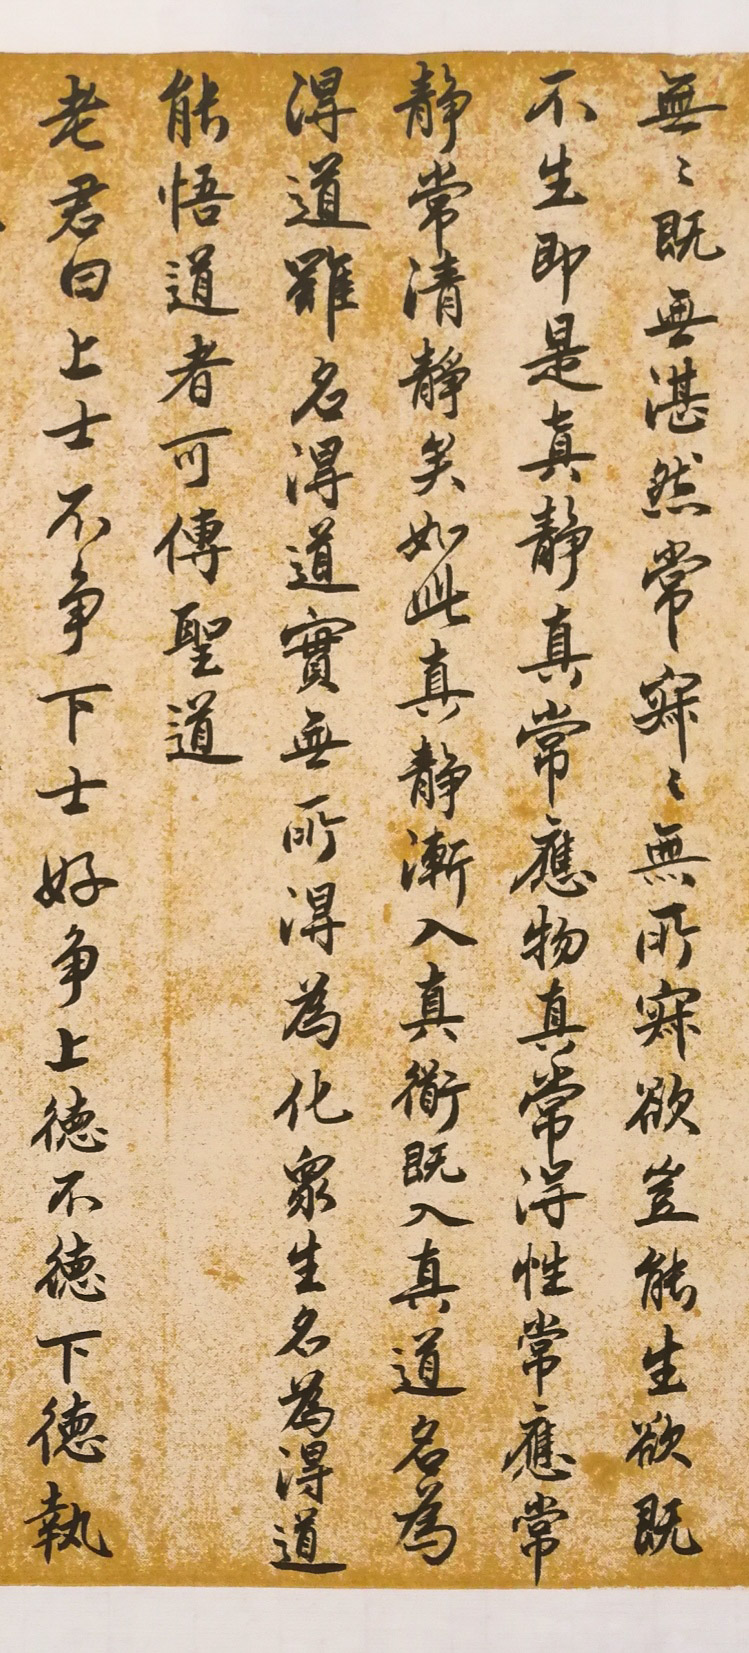 無〻既無湛然常寂〻無所寂欲豈能生欲既
不生即是真靜真常應物真常得性常應常
靜常清靜矣如此真靜漸入真衜既入真道名為
得道雖名得道實無所得為化眾生名為得道
能悟道者可傳聖道
老君曰上士不争下士好争上德不德下德執